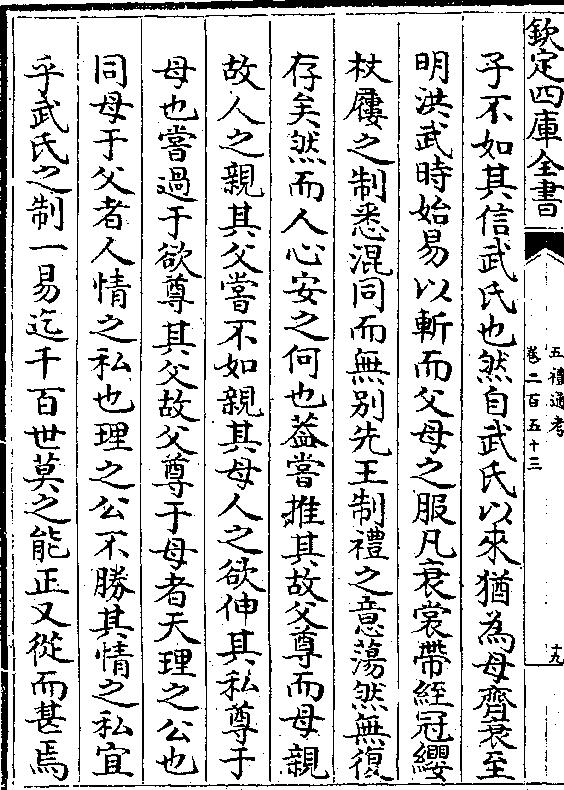 欽定四庫全書
五禮通考
卷二百五十三
十九
子不如其信武氏也然自武氏以來猶為母齊衰至
明洪武時始易以斬而父母之服凡衰裳帶絰冠纓
杖屨之制悉混同而無别先王制禮之意蕩然無復
存矣然而人心安之何也葢嘗推其故父尊而母親
故人之親其父嘗不如親其母人之欲伸其私尊于
母也嘗過于欲尊其父故父尊于母者天理之公也
同母于父者人情之私也理之公不勝其情之私宜
乎武氏之制一易迄千百世莫之能正又從而甚焉